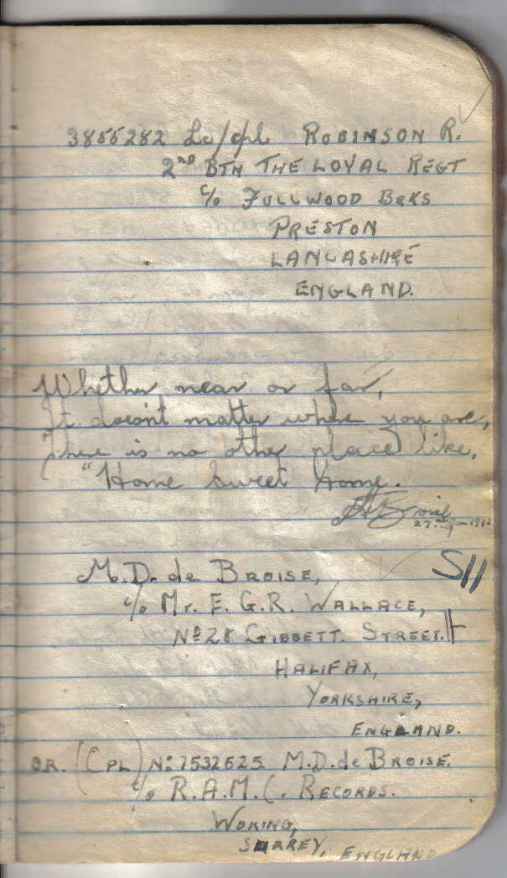 3855282 Lc/cpl ROBINSON R.
2ND BTN THE LOYAL REGT
c/o FULLWOOD BRKS
PRESTON
LANCASHIRE
ENGLAND.
Whether near or far,
It doesn't matter where you are,
There is no other place like,
"Home sweet home.
M.D. de BROISE,
c/o Mr. E. G.R. WALLACE,
No 28 GIBBETT. STREET.
HALIFAX,
YORKSHIRE,
ENGLAND.
OR. (CPL) No: 7532625 M.D. de BROISE.
c/o R.A.M.C. RECORDS.
WOKING,
SURREY, ENGLAND